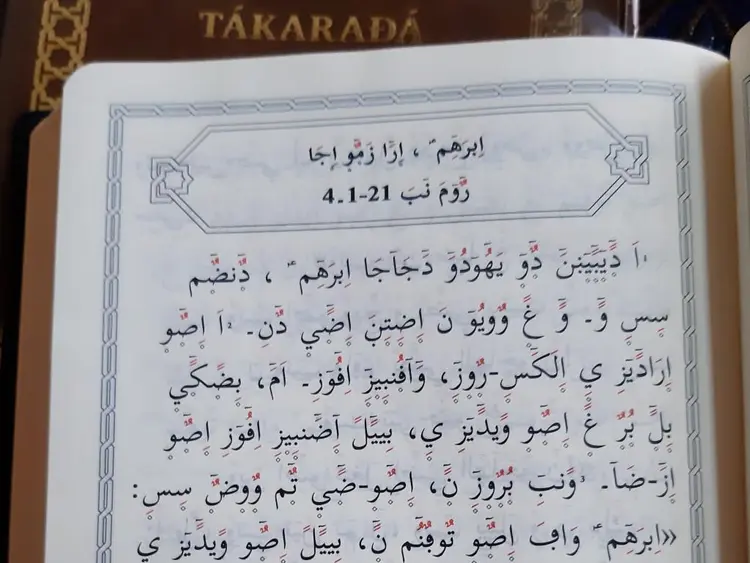 TÁKARAĐÁ
اِبرَهِم ، إرَّا زَمُّو إجَا
رّوَومَ نَبَ 21-1-4
1 اَ دَّيبٜيَنن دّوٓ يَهُودُوَ دَجَاجَا اِبرَهِم ، دّنضَم
سِسِ وَّ۔ وَّ غَّ وُويُوٓ نَ إضِتِنَ إضَّي دَّنِ۔ 2 اَ إصّوٓ
إرَادّيَزِ يِ الكَسِ-رُّوزِ، وَآفُنبِيزِ اِفُوزِ۔ اَمَ، بِضَكَّي
بِلَّ بُرّ غَّ إصّوٓ وَيدّيَزِ يِ، بِييَلَّ اَضَنبِيزِ اِفُوزِ إصّوٓ
اِزِ-ضَآ۔ 3 وَّنبَ بُرُوزِ نَّ، إصّوٓ-ضَّي تَّم وُوضّ سِسِ:
«اِبرَهِم وَافَ إصّوٓ تُوفُنَّم نَّ، بِييَلَّ إصّوٓ وَيدّيَزِ يِ